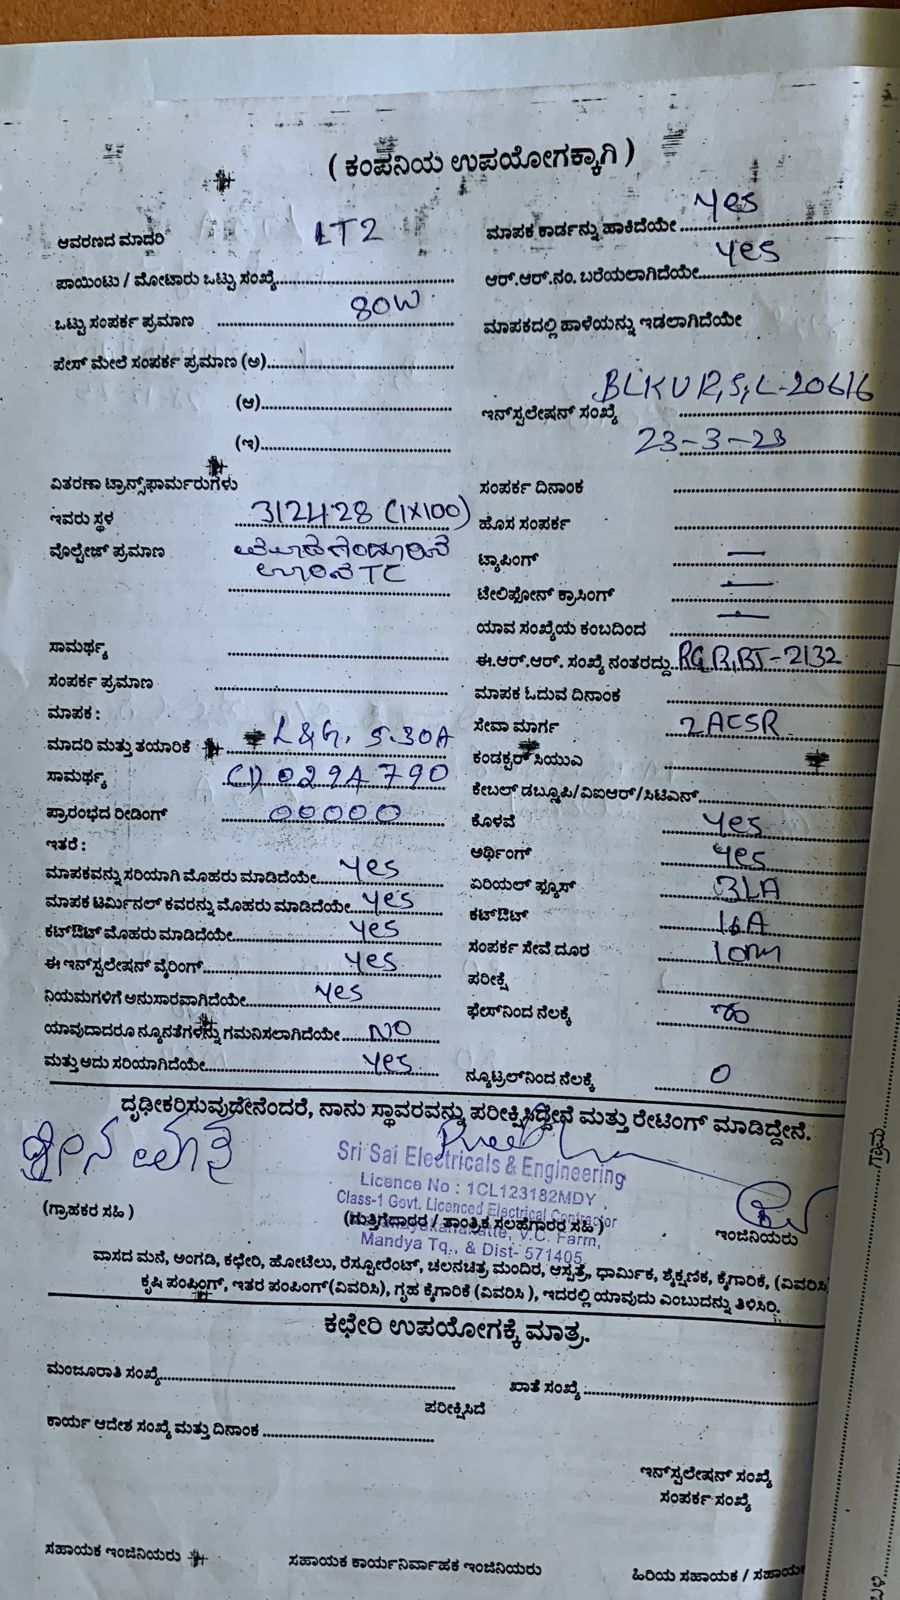 ( ಕಂಪನಿಯ ಉಪಯೋಗಕ್ಕಾಗಿ )
ಆವರಣದ ಮಾದರಿ LT2
ಪಾಯಿಂಟು / ಮೋಟಾರು ಒಟ್ಟು ಸಂಖ್ಯೆ
ಒಟ್ಟು ಸಂಪರ್ಕ ಪ್ರಮಾಣ 80W
ಪೇಸ್ ಮೇಲೆ ಸಂಪರ್ಕ ಪ್ರಮಾಣ (ಅ)
(ಆ)
(ಇ)
ವಿತರಣಾ ಟ್ರಾನ್ಸ್‌ಫಾರ್ಮರುಗಳು
ಇವರು ಸ್ಥಳ 312428 (1X100)
ವೊಲ್ಟೇಜ್ ಪ್ರಮಾಣ
TC
ಸಾಮರ್ಥ್ಯ
ಸಂಪರ್ಕ ಪ್ರಮಾಣ
ಮಾಪಕ :
ಮಾದರಿ ಮತ್ತು ತಯಾರಿಕೆ L&G, 5-30A
ಸಾಮರ್ಥ್ಯ 0294790
ಪ್ರಾರಂಭದ ರೀಡಿಂಗ್ 00000
ಇತರೆ :
ಮಾಪಕವನ್ನು ಸರಿಯಾಗಿ ಮೊಹರು ಮಾಡಿದೆಯೇ yes
ಮಾಪಕ ಟರ್ಮಿನಲ್ ಕವರನ್ನು ಮೊಹರು ಮಾಡಿದೆಯೇ yes
ಕಟ್ಔಟ್ ಮೊಹರು ಮಾಡಿದೆಯೇ yes
ಈ ಇನ್‌ಸ್ಟಲೇಷನ್ ವೈರಿಂಗ್ yes
ನಿಯಮಗಳಿಗೆ ಅನುಸಾರವಾಗಿದೆಯೇ yes
ಯಾವುದಾದರೂ ನ್ಯೂನತೆಗಳನ್ನು ಗಮನಿಸಲಾಗಿದೆಯೇ NO
ಮತ್ತು ಅದು ಸರಿಯಾಗಿದೆಯೇ yes
ಮಾಪಕ ಕಾರ್ಡನ್ನು ಹಾಕಿದೆಯೇ yes
ಆರ್.ಆರ್.ನಂ. ಬರೆಯಲಾಗಿದೆಯೇ yes
ಮಾಪಕದಲ್ಲಿ ಹಾಳೆಯನ್ನು ಇಡಲಾಗಿದೆಯೇ
ಇನ್‌ಸ್ಟಲೇಷನ್ ಸಂಖ್ಯೆ BLKUR,S,L-20616
23-3-23
ಸಂಪರ್ಕ ದಿನಾಂಕ
ಹೊಸ ಸಂಪರ್ಕ
ಟ್ಯಾಪಿಂಗ್ —
ಟೇಲಿಫೋನ್ ಕ್ರಾಸಿಂಗ್ —
ಯಾವ ಸಂಖ್ಯೆಯ ಕಂಬದಿಂದ —
ಈ.ಆರ್.ಆರ್. ಸಂಖ್ಯೆ ನಂತರದ್ದು
ಮಾಪಕ ಓದುವ ದಿನಾಂಕ
ಸೇವಾ ಮಾರ್ಗ 2ACSR
ಕಂಡಕ್ಟರ್ ಸಿಯುವಿ
ಕೇಬಲ್ ಡಬ್ಲೂಪಿ/ವಿಐಆರ್/ಸಿಟಿಎನ್
ಕೊಳವೆ yes
ಅರ್ಥಿಂಗ್ yes
ಏರಿಯಲ್ ಫ್ಯೂಸ್
ಕಟ್ಔಟ್ 16A
ಸಂಪರ್ಕ ಸೇವೆ ದೂರ 10m
ಪರೀಕ್ಷೆ
ಫೇಸ್‌ನಿಂದ ನೆಲಕ್ಕೆ
ನ್ಯೂಟ್ರಲ್‌ನಿಂದ ನೆಲಕ್ಕೆ 0
ದೃಢೀಕರಿಸುವುದೇನೆಂದರೆ, ನಾನು ಸ್ಥಾವರವನ್ನು ಪರೀಕ್ಷಿಸಿದ್ದೇನೆ ಮತ್ತು ರೇಟಿಂಗ್ ಮಾಡಿದ್ದೇನೆ.
Sri Sai Electricals & Engineering
Licence No : 1CL123182MDY
Class-1 Govt. Licenced Electrical Contractor
V.C. Farm,
Mandya Tq., & Dist- 571405
(ಗ್ರಾಹಕರ ಸಹಿ ) (ಗುತ್ತಿಗೆದಾರರ / ತಾಂತ್ರಿಕ ಸಲಹೆಗಾರರ ಸಹಿ ) ಇಂಜಿನಿಯರು
ವಾಸದ ಮನೆ, ಅಂಗಡಿ, ಕಛೇರಿ, ಹೋಟೆಲು, ರೆಸ್ಟೋರೆಂಟ್, ಚಲನಚಿತ್ರ ಮಂದಿರ, ಆಸ್ಪತ್ರೆ, ಧಾರ್ಮಿಕ, ಶೈಕ್ಷಣಿಕ, ಕೈಗಾರಿಕೆ, (ವಿವರಿಸಿ
ಕೃಷಿ ಪಂಪಿಂಗ್, ಇತರ ಪಂಪಿಂಗ್(ವಿವರಿಸಿ), ಗೃಹ ಕೈಗಾರಿಕೆ (ವಿವರಿಸಿ ), ಇದರಲ್ಲಿ ಯಾವುದು ಎಂಬುದನ್ನು ತಿಳಿಸಿರಿ.
ಕಛೇರಿ ಉಪಯೋಗಕ್ಕೆ ಮಾತ್ರ.
ಮಂಜೂರಾತಿ ಸಂಖ್ಯೆ ಖಾತೆ ಸಂಖ್ಯೆ
ಪರೀಕ್ಷಿಸಿದೆ
ಕಾರ್ಯ ಆದೇಶ ಸಂಖ್ಯೆ ಮತ್ತು ದಿನಾಂಕ
ಇನ್‌ಸ್ಟಲೇಷನ್ ಸಂಖ್ಯೆ
ಸಂಪರ್ಕ ಸಂಖ್ಯೆ
ಸಹಾಯಕ ಇಂಜಿನಿಯರು ಸಹಾಯಕ ಕಾರ್ಯನಿರ್ವಾಹಕ ಇಂಜಿನಿಯರು ಹಿರಿಯ ಸಹಾಯಕ / ಸಹಾಯಕ
ಗ್ರಾಮ